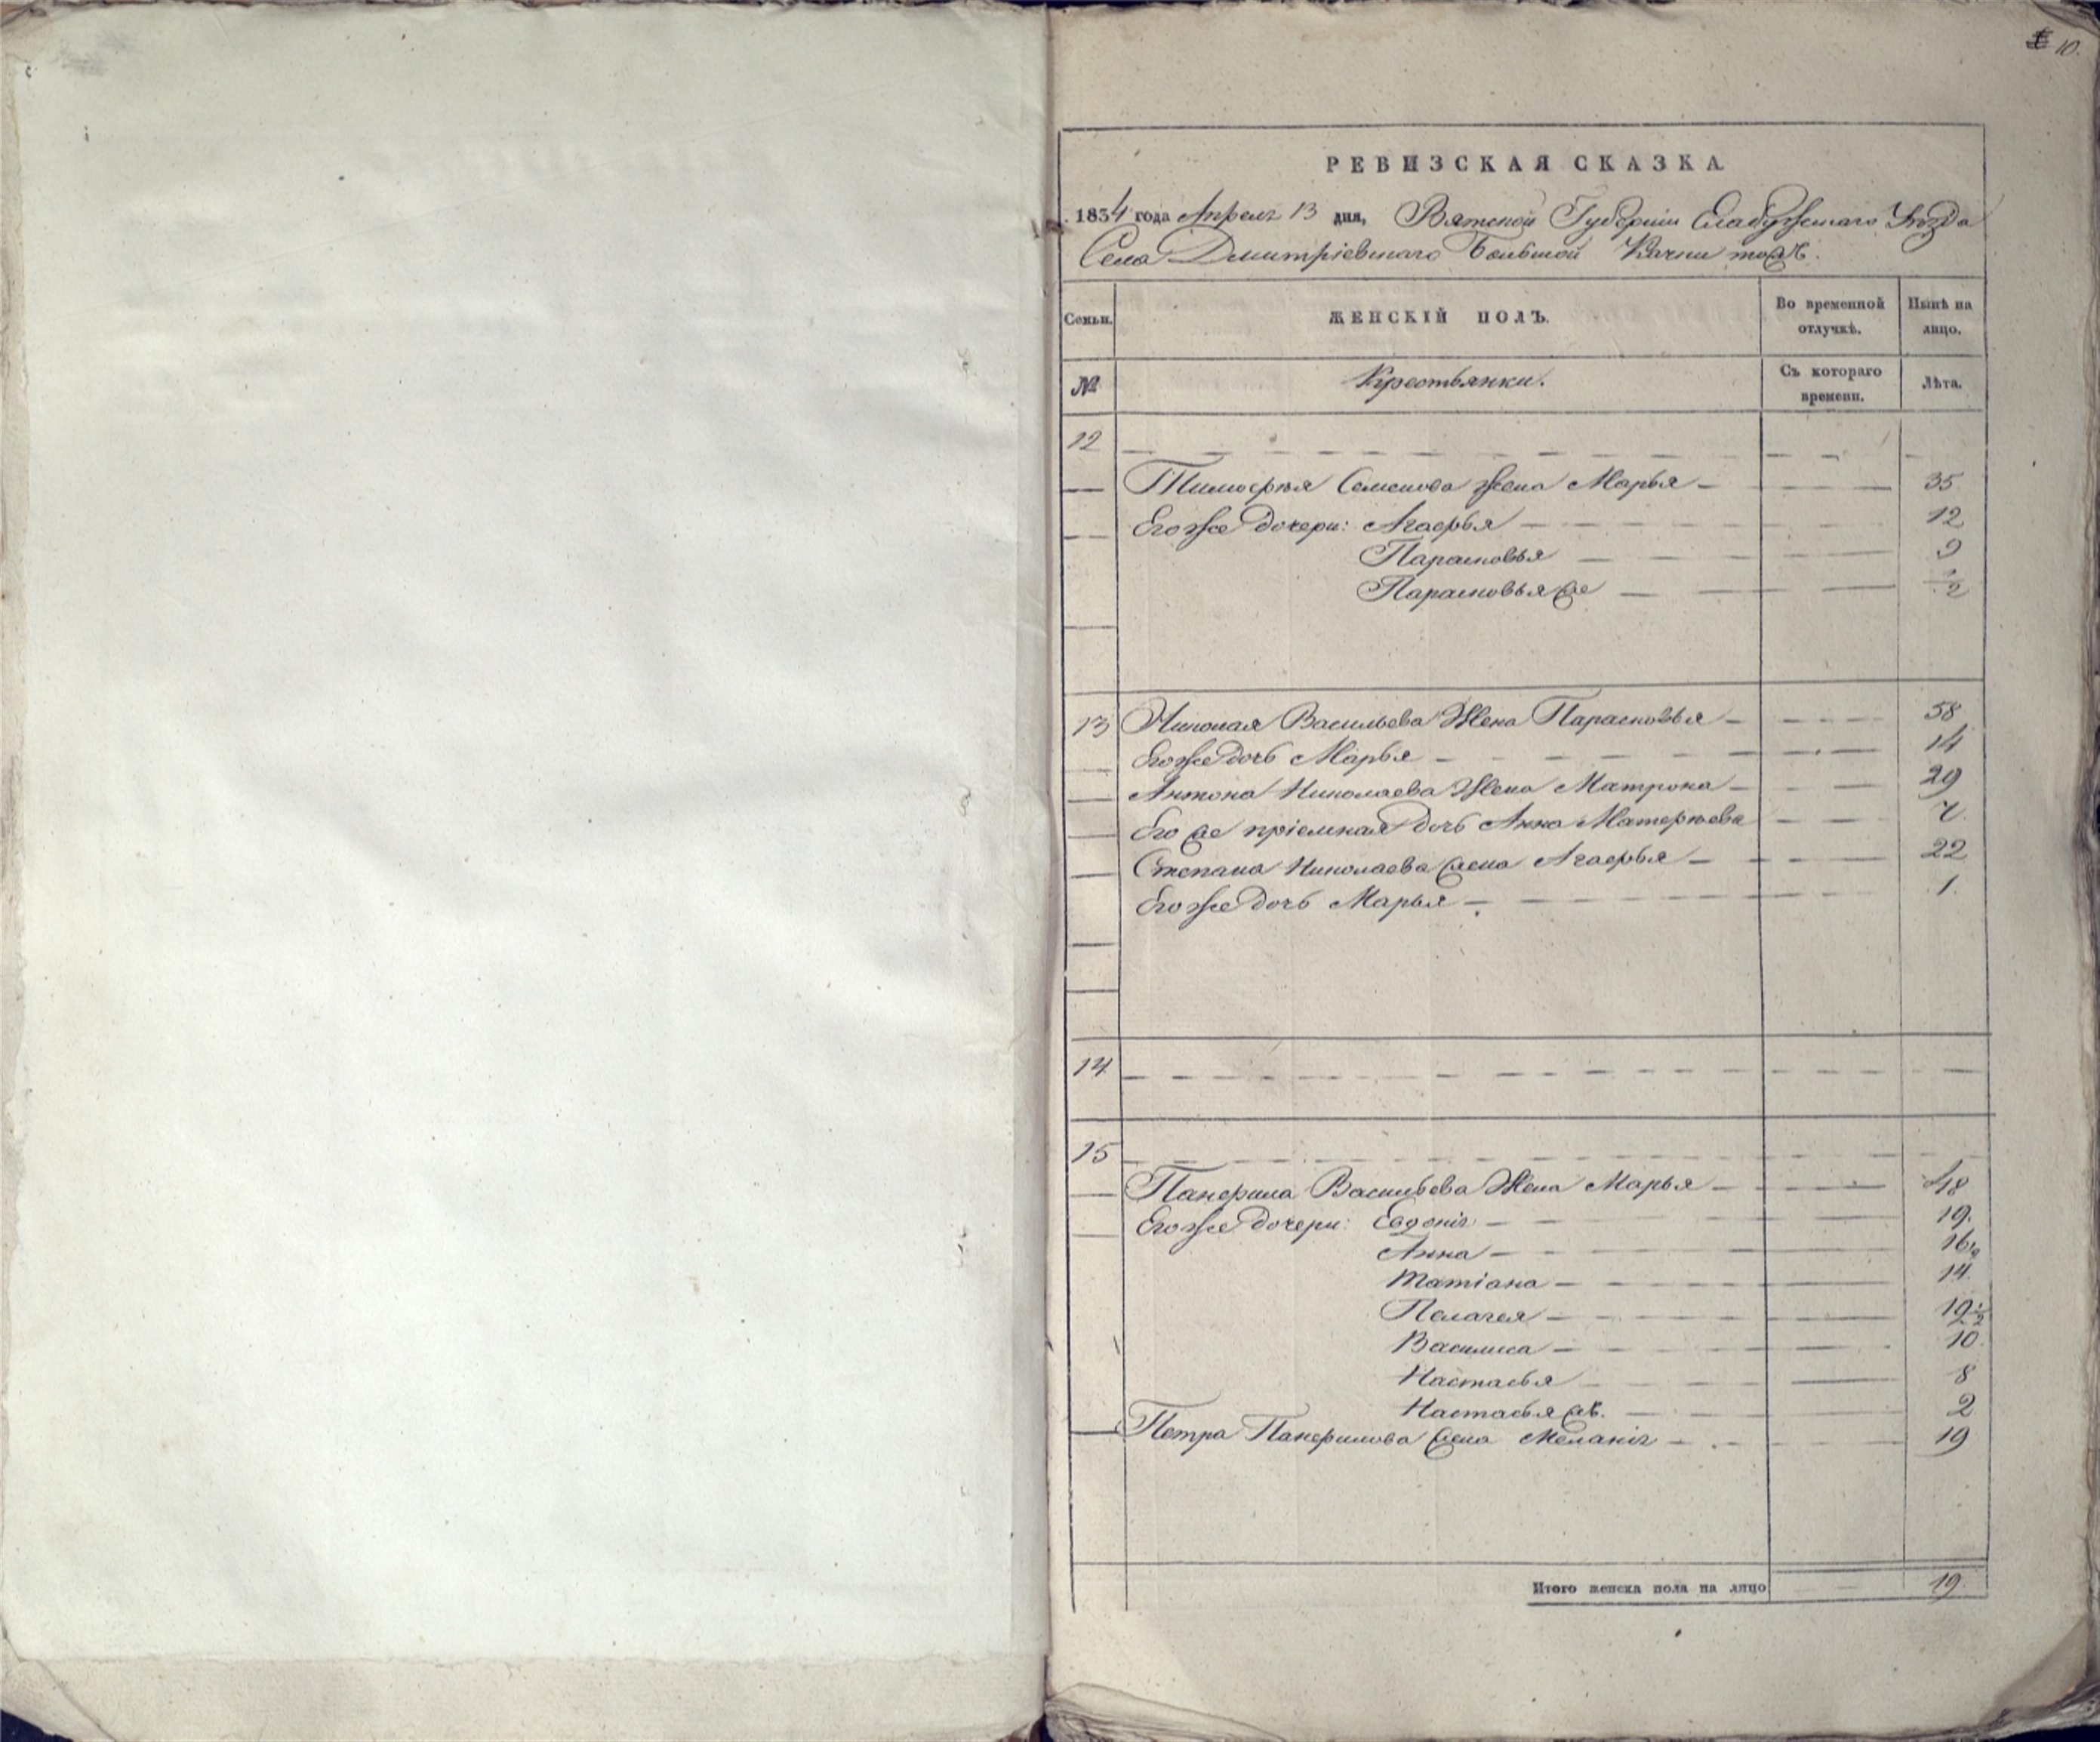 10.
РЕВИЗСКАЯ СКАЗКА
1834 года Апреля 13 дня, Вятской Губерніи Елабужскаго Уѣзда
Села Дмитріевскаго Большой Качки тожъ.
Семьи. ЖЕНСКІЙ ПОЛЪ. Во временной отлучкѣ. Нынѣ на лицо.
№ Крестьянки. Съ котораго времени. Лѣта.
12
Тимофѣя Семенова жена Марья 35
Его же дочери: Агафья 12
Парасковья 9
Парасковья же 1/2
13 Николая Васильева Жена Парасковья 58
Его же дочь Марья 14
Антона Николаева Жена Матрона 29
Его же пріемная дочь Анна Матфѣева 7
Степана Николаева жена Агафья 22
Его же дочь Марья 1
14
15
Панфила Васильева Жена Марья 48
Его же дочери: Евдокія 19.
Анна 16 1/2
Татіана 14
Пелагея 12 1/2
Василиса 10
Настасья 8
Настасья жъ. 2
Петра Панфилова жена Меланія 19
Итого женска пола на лицо 19